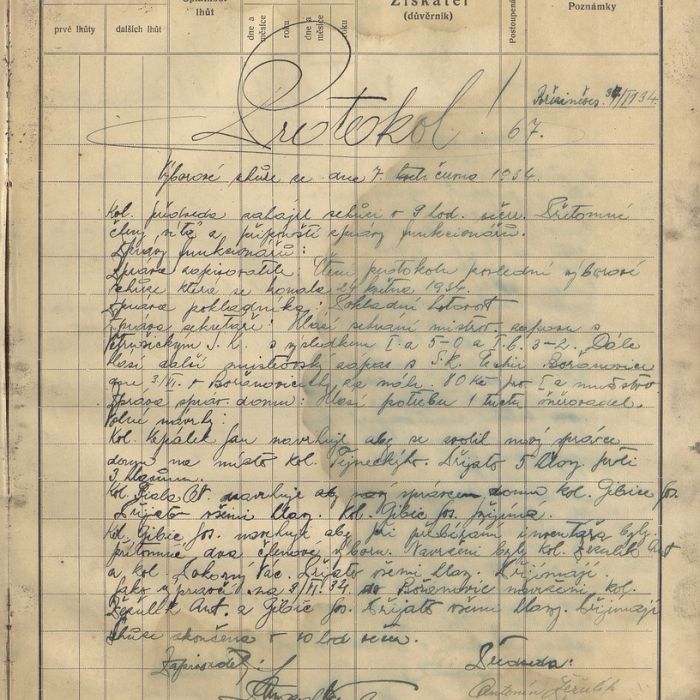 lhůt
Získatel
(důvěrník)
Poznámky
prvé lhůty
dalších lhůt
dne a měsíce
roku
dne a měsíce
roku
Protokol!
67.
Výborové schůze ze dne 7. června 1934.
Kol. předseda zahájil schůzi v 9 hod. večer. Přítomné
členy vítá a připouští zprávy funkcionářů.
Zprávy funkcionářů:
Zpráva zapisovatele: Čtení protokolu poslední výborové
schůze která se konala 24 května 1934.
Zpráva pokladníka: Pokladní hotovost
Zpráva sekretáře: Hlásí sehrání mistrov. zápasu s
S. K. s výsledkem I.a 5-0 a I.b. 3-2. Dále
hlásí další mistrovský zápas s S.K. Čechie Bořanovice
dne 3/VI. v Bořanovicích za náhr. 80 Kč pro I.a mužstvo
Zpráva správ. domu: Hlásí potřebu 1 tuctu
Volné návrhy:
Kol. Kepálek Jan navrhuje aby se zvolil nový správce
domu na místo kol. Tejneckýho. Přijato 5 hlasy proti
3 hlasům.
Kol. Fiala Ot. navrhuje aby nový správcem domu kol. Gibic Jos.
Přijato všemi hlasy. Kol. Gibic Jos. přijímá.
Kol. Gibic Jos. navrhuje aby při přebírání inventáře byly
přítomné dva členové výboru. Navrženi byly kol. Ježulík Ant
a kol. Pokorný Vác. Přijato všemi hlasy. Přijímají.
Jako zpravči na 3/VI. 34. do Bořanovic navrženi kol.
Ježulík Ant. a Gibic Jos. Přijato všemi hlasy. Přijímají
Schůze skončena v 10 hod večer.
Zapisovatel:
Předseda:
Antonín Ježulík